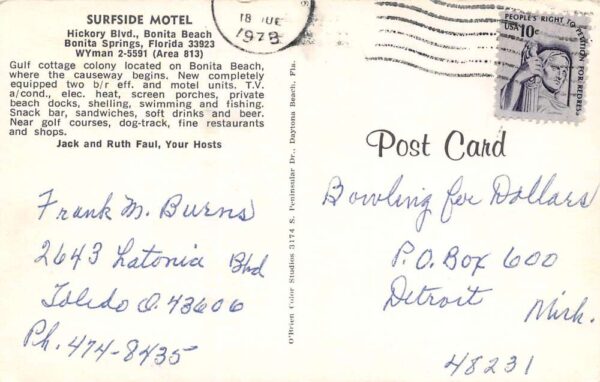 SURFSIDE MOTEL
Hickory Blvd., Bonita Beach
Bonita Springs, Florida 33923
WYman 2-5591 (Area 813)
Gulf cottage colony located on Bonita Beach,
where the causeway begins. New completely
equipped two b/r eff. and motel units. T.V.
a/cond., elec. heat, screen porches, private
beach docks, shelling, swimming and fishing.
Snack bar, sandwiches, soft drinks and beer.
Near golf courses, dog-track, fine restaurants
and shops.
Jack and Ruth Faul, Your Hosts
Frank M. Burns
2643 Latonia Blvd
Toledo O. 43606
Ph. 474-8435
O'Brien Color Studios 3174 S. Peninsular Dr., Daytona Beach, Fla.
18
1978
PEOPLE'S RIGHT TO PETITION FOR REDRESS
USA 10c
Post Card
Bowling for Dollars
P.O. Box 600
Detroit
Mich.
48231